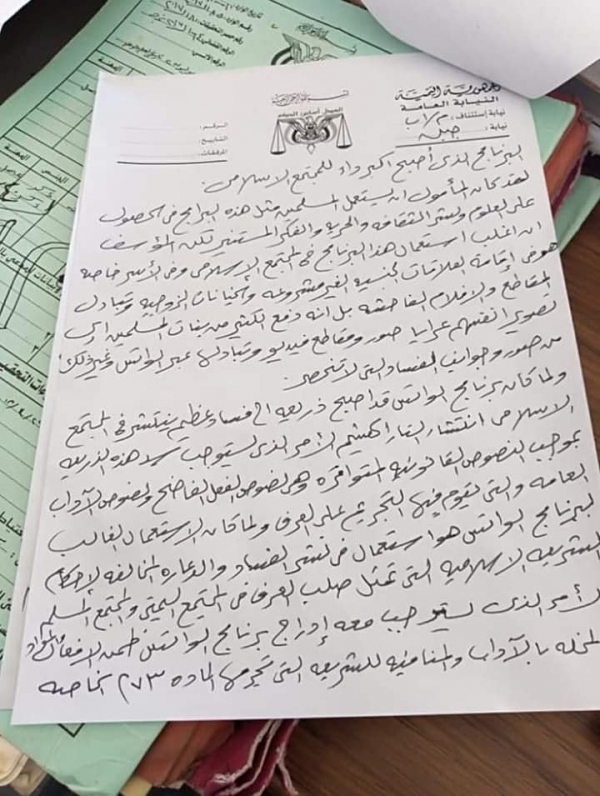 الجمهورية اليمنية
النيابة العامة
نيابة إستئناف: م/إب
نيابة: جبلة
العدل أساس الحكم
الرقم:
التاريخ:
المرفقات:
البرنامج الذى أصبح اكبر داء للمجتمع الاسلامى.
لقد كان المأمول ان يستغل المسلمين مثل هذه البرامج فى الحصول
على العلوم ونشر الثقافه والحريه والفكر المستنير لكن المؤسف
ان اغلب استعمال هذا البرنامج فى المجتمع الإسلامى وفى الأسر خاصة
هو فى إقامة لعلاقات الجنسيه الغير مشروعه والخيانات الزوجيه وتبادل
المقاطع والافلام الفاحشه بل انه دفع الكثير من بنات المسلمين إلى
تصوير انفسهم عرايا صور ومقاطع فيديو وتبادلها عبر الواتس وغير ذلك
من صور وجوانب الفساد التى لا تنحصر.
ولما كان برنامج الواتس قد اصبح ذريعه الى فساد عظيم ينتشر فى المجتمع
الاسلامى انتشار النار الهشيم الأمر الذى يستوجب سد هذه الذريعه
بموجب النصوص القانونيه المتوافره وهى نصوص الفعل الفاضح ونصوص الآداب
العامه والتى يقوم فيها التجريم على العرف ولما كان الاستعمال الغالب
لبرنامج الواتس هو استعمال فى نشر الفساد والدعاره المخالفه لإحكام
الشريعه الإسلاميه التى تمثل صلب العرف فى المجتمع اليمنى والمجتمع المسلم
الأمر الذى يستوجب معه إدراج برنامج الواتس ضمن الافعال
المخله بالآداب والمنافيه للشريعه التى تجرمها الماده ٢٧٣ الخاصه